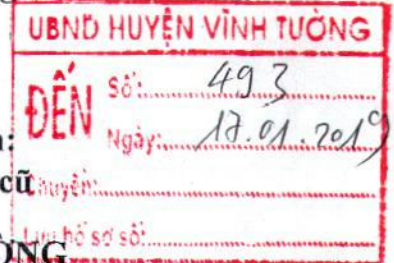 UBND HUYỆN VĨNH TƯỜNG
ĐẾN
Số: 493
Ngày: 17.01.2019
cũ
Chuyển:
Lưu hồ sơ số: